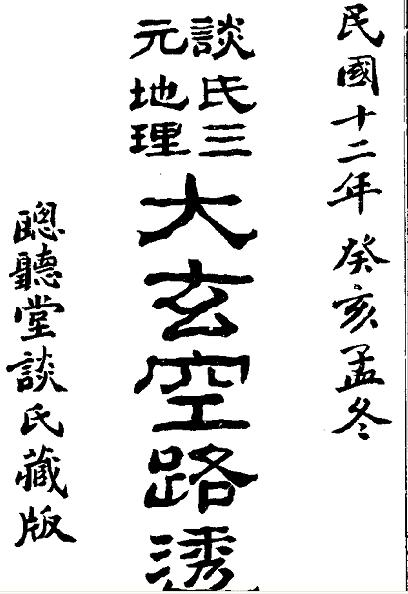 民國十二年 癸亥孟冬
談氏三
元地理
大玄空路透
聰聽堂談氏藏版